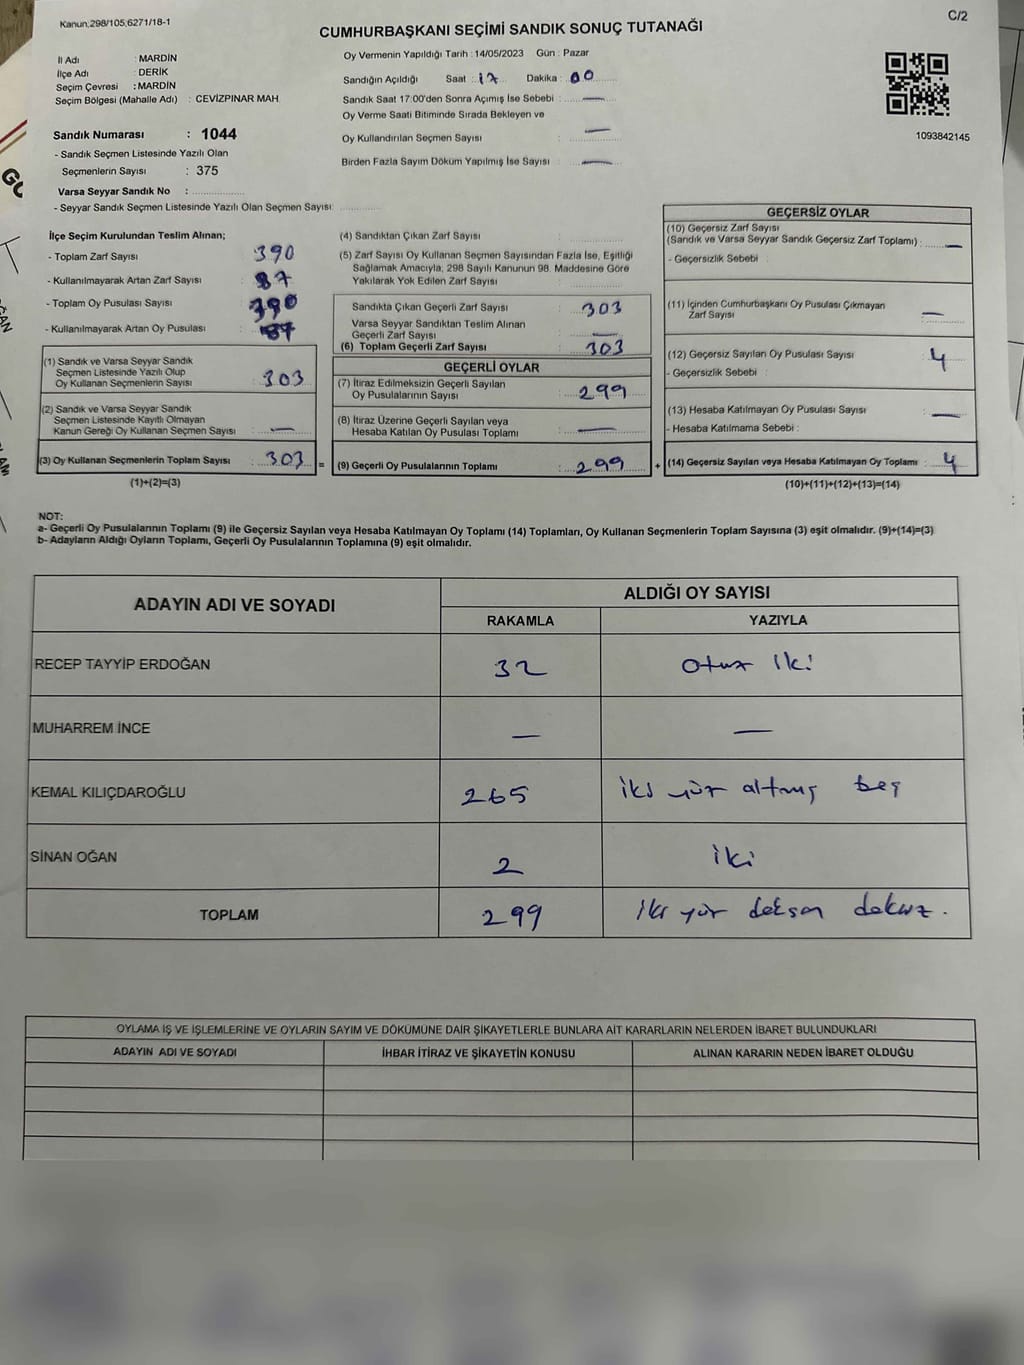 Kanun:298/105,6271/18-1
C/2
CUMHURBAŞKANI SEÇİMİ SANDIK SONUÇ TUTANAĞI
İl Adı : MARDİN
İlçe Adı : DERİK
Seçim Çevresi : MARDİN
Seçim Bölgesi (Mahalle Adı) : CEVİZPINAR MAH.
Sandık Numarası : 1044
- Sandık Seçmen Listesinde Yazılı Olan
Seçmenlerin Sayısı : 375
Varsa Seyyar Sandık No :
- Seyyar Sandık Seçmen Listesinde Yazılı Olan Seçmen Sayısı:
Oy Vermenin Yapıldığı Tarih : 14/05/2023 Gün : Pazar
Sandığın Açıldığı Saat : 17 Dakika : 00
Sandık Saat 17:00'den Sonra Açımış İse Sebebi : —
Oy Verme Saati Bitiminde Sırada Bekleyen ve
Oy Kullandırılan Seçmen Sayısı : —
Birden Fazla Sayım Döküm Yapılmış İse Sayısı : —
1093842145
İlçe Seçim Kurulundan Teslim Alınan;
- Toplam Zarf Sayısı : 390
- Kullanılmayarak Artan Zarf Sayısı : 87
- Toplam Oy Pusulası Sayısı : 390
- Kullanılmayarak Artan Oy Pusulası : 87
(1) Sandık ve Varsa Seyyar Sandık
Seçmen Listesinde Yazılı Olup
Oy Kullanan Seçmenlerin Sayısı : 303
(2) Sandık ve Varsa Seyyar Sandık
Seçmen Listesinde Kayıtlı Olmayan
Kanun Gereği Oy Kullanan Seçmen Sayısı : —
(3) Oy Kullanan Seçmenlerin Toplam Sayısı : 303
(1)+(2)=(3)
(4) Sandıktan Çıkan Zarf Sayısı :
(5) Zarf Sayısı Oy Kullanan Seçmen Sayısından Fazla İse, Eşitliği
Sağlamak Amacıyla; 298 Sayılı Kanunun 98. Maddesine Göre
Yakılarak Yok Edilen Zarf Sayısı :
Sandıkta Çıkan Geçerli Zarf Sayısı : 303
Varsa Seyyar Sandıktan Teslim Alınan
Geçerli Zarf Sayısı : —
(6) Toplam Geçerli Zarf Sayısı : 303
GEÇERLİ OYLAR
(7) İtiraz Edilmeksizin Geçerli Sayılan
Oy Pusulalarının Sayısı : 299
(8) İtiraz Üzerine Geçerli Sayılan veya
Hesaba Katılan Oy Pusulası Toplamı : —
= (9) Geçerli Oy Pusulalarının Toplamı : 299
GEÇERSİZ OYLAR
(10) Geçersiz Zarf Sayısı
(Sandık ve Varsa Seyyar Sandık Geçersiz Zarf Toplamı) : —
- Geçersizlik Sebebi :
(11) İçinden Cumhurbaşkanı Oy Pusulası Çıkmayan
Zarf Sayısı : —
(12) Geçersiz Sayılan Oy Pusulası Sayısı : 4
- Geçersizlik Sebebi :
(13) Hesaba Katılmayan Oy Pusulası Sayısı : —
- Hesaba Katılmama Sebebi :
+ (14) Geçersiz Sayılan veya Hesaba Katılmayan Oy Toplamı : 4
(10)+(11)+(12)+(13)=(14)
NOT:
a- Geçerli Oy Pusulalarının Toplamı (9) ile Geçersiz Sayılan veya Hesaba Katılmayan Oy Toplamı (14) Toplamları, Oy Kullanan Seçmenlerin Toplam Sayısına (3) eşit olmalıdır. (9)+(14)=(3)
b- Adayların Aldığı Oyların Toplamı, Geçerli Oy Pusulalarının Toplamına (9) eşit olmalıdır.
ADAYIN ADI VE SOYADI ALDIĞI OY SAYISI
RAKAMLA YAZIYLA
RECEP TAYYİP ERDOĞAN 32 Otuz iki
MUHARREM İNCE — —
KEMAL KILIÇDAROĞLU 265 iki yüz altmış beş
SİNAN OĞAN 2 iki
TOPLAM 299 iki yüz doksan dokuz.
OYLAMA İŞ VE İŞLEMLERİNE VE OYLARIN SAYIM VE DÖKÜMÜNE DAİR ŞİKAYETLERLE BUNLARA AİT KARARLARIN NELERDEN İBARET BULUNDUKLARI
ADAYIN ADI VE SOYADI İHBAR İTİRAZ VE ŞİKAYETİN KONUSU ALINAN KARARIN NEDEN İBARET OLDUĞU